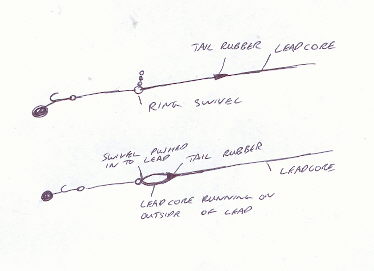 TAIL RUBBER
LEADCORE
RING SWIVEL
SWIVEL PUSHED
IN TO LEAD
TAIL RUBBER
LEADCORE
LEADCORE RUNNING ON
OUTSIDE OF LEAD